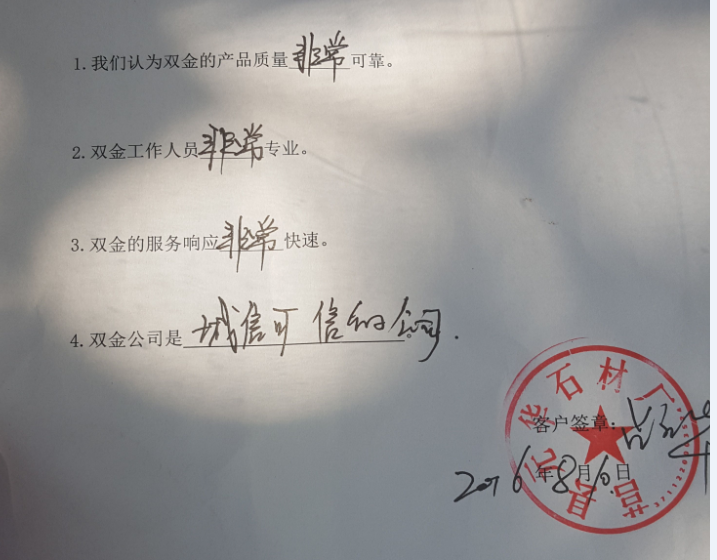 1.我们认为双金的产品质量非常可靠。
2.双金工作人员非常专业。
3.双金的服务响应非常快速。
4.双金公司是诚信可信的公司.
客户签章：
2016年8月10日
莒县元华石材厂